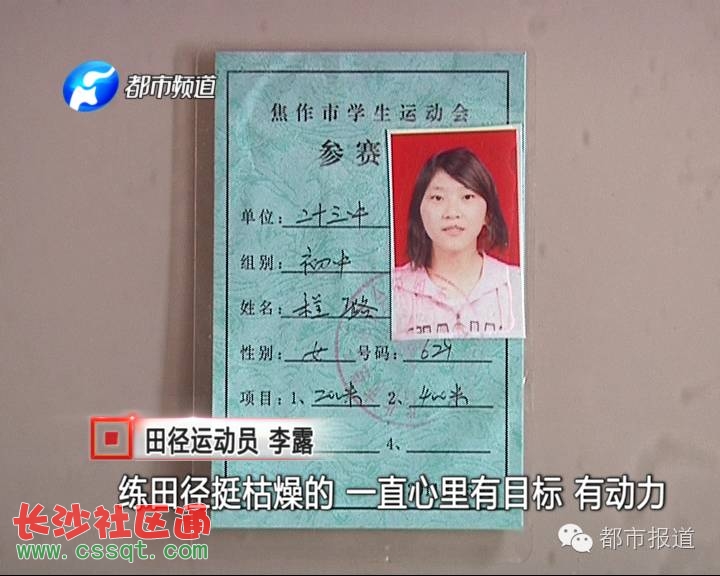 都市频道
焦作市学生运动会
参赛
单位：二十三中
组别：初中
姓名：程璐
性别：女 号码：624
项目：1、200米 2、400米
4、
田径运动员 李露
练田径挺枯燥的 一直心里有目标 有动力
长沙社区通
www.cssqt.com
都市报道